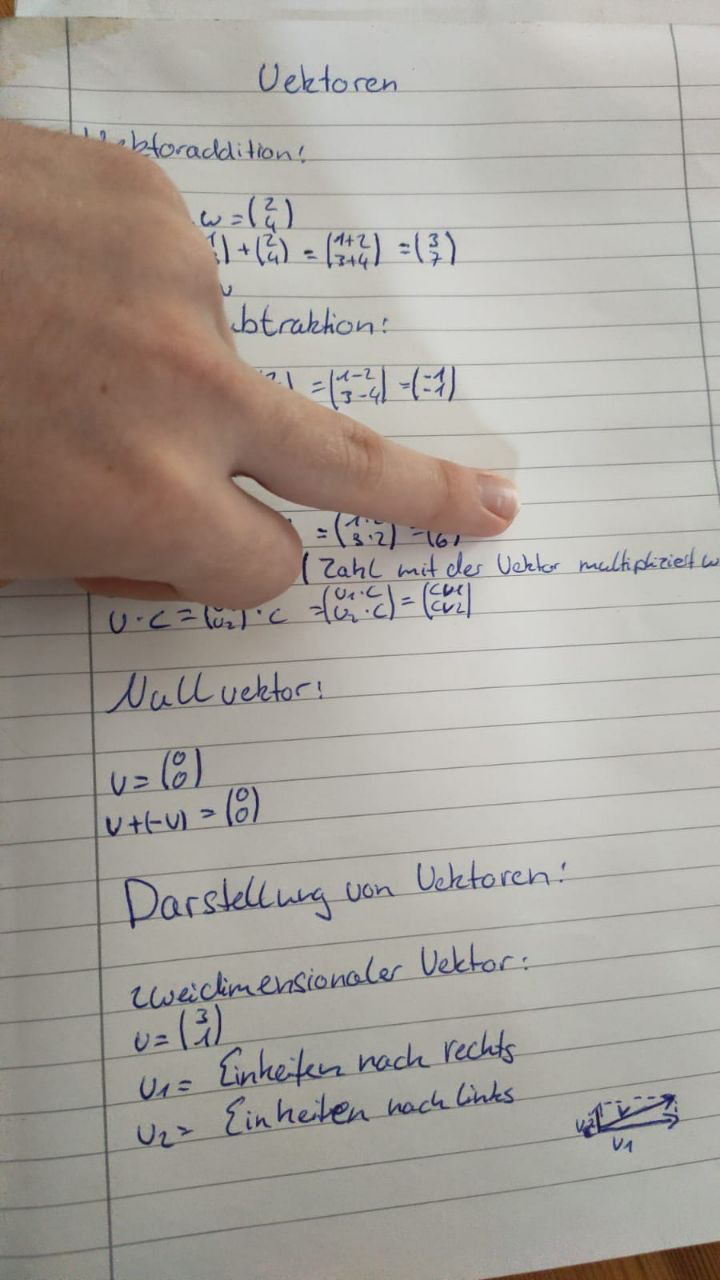 Vektoren
Vektoraddition:
w = (2 4)
+ (2 4) = (1+2 3+4) = (3 7)
btraktion:
= (1-2 3-4) = (-1 -1)
= (1·2 3·2) = (6)
( Zahl mit der Vektor multipliziert w
v · c = (v2) · c = (v1·c v2·c) = (cv1 cv2)
Nullvektor:
v = (0 0)
v+(-v) = (0 0)
Darstellung von Vektoren:
zweidimensionaler Vektor:
v = (3 1)
v1 = Einheiten nach rechts
v2 = Einheiten nach links
v2 v
v1